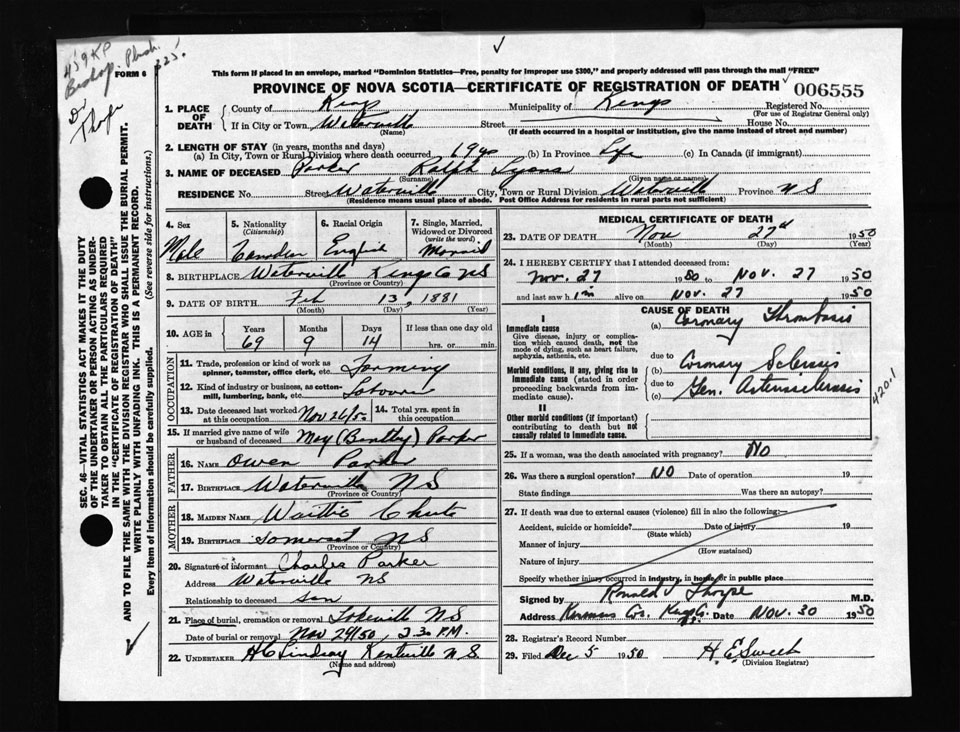 459 KP
Bishop. Plush.
225
Dr
Thorpe
FORM 6
This form if placed in an envelope, marked "Dominion Statistics—Free, penalty for improper use $300," and properly addressed will pass through the mail "FREE"
PROVINCE OF NOVA SCOTIA—CERTIFICATE OF REGISTRATION OF DEATH 006555
1. PLACE OF DEATH
County of Kings Municipality of Kings Registered No.
(For use of Registrar General only)
If in City or Town Waterville Street House No.
(Name) (If death occurred in a hospital or institution, give the name instead of street and number)
2. LENGTH OF STAY (in years, months and days)
(a) In City, Town or Rural Division where death occurred 69 yrs (b) In Province Life (c) In Canada (if immigrant)
3. NAME OF DECEASED Parker Ralph Lyons
(Surname) (Given name or names)
RESIDENCE No. Street Waterville City, Town or Rural Division Waterville Province N S
(Residence means usual place of abode. Post Office Address for residents in rural parts not sufficient)
4. Sex
Male
5. Nationality
(Citizenship)
Canadian
6. Racial Origin
English
7. Single, Married,
Widowed or Divorced
(write the word)
Married
8. BIRTHPLACE Waterville Kings Co NS
(Province or Country)
9. DATE OF BIRTH Feb 13, 1881
(Month) (Day) (Year)
10. AGE in Years Months Days If less than one day old
69 9 14 hrs. or min.
OCCUPATION
11. Trade, profession or kind of work as
spinner, teamster, office clerk, etc. Farming
12. Kind of industry or business, as cotton-
mill, lumbering, bank, etc. Labourer
13. Date deceased last worked
at this occupation Nov 26/50
14. Total yrs. spent in
this occupation
15. If married give name of wife
or husband of deceased May (Bently) Parker
FATHER
16. NAME Owen Parker
17. BIRTHPLACE Waterville N S
(Province or Country)
MOTHER
18. MAIDEN NAME Waitie Chute
19. BIRTHPLACE Somerset N S
(Province or Country)
20. Signature of informant Charles Parker
Address Waterville NS
Relationship to deceased son
21. Place of burial, cremation or removal Lakeville N S
Date of burial or removal Nov 29/50, 2.30 P.M.
22. UNDERTAKER H C Lindsay Kentville N.S.
(Name and address)
MEDICAL CERTIFICATE OF DEATH
23. DATE OF DEATH Nov 27th 1950
(Month) (Day) (Year)
24. I HEREBY CERTIFY that I attended deceased from:
Nov. 27 1950 to Nov. 27 1950
and last saw him alive on Nov. 27 1950
CAUSE OF DEATH
I
Immediate cause
Give disease, injury or complica-
tion which caused death, not the
mode of dying, such as heart failure,
asphyxia, asthenia, etc.
(a) Coronary Thrombosis
due to
Morbid conditions, if any, giving rise to
immediate cause (stated in order
proceeding backwards from im-
mediate cause).
(b) Coronary Sclerosis
due to
(c) Gen. Arteriosclerosis
420.1
II
Other morbid conditions (if important)
contributing to death but not
causally related to immediate cause.
25. If a woman, was the death associated with pregnancy? No
26. Was there a surgical operation? NO Date of operation 19
State findings Was there an autopsy?
27. If death was due to external causes (violence) fill in also the following:—
Accident, suicide or homicide? Date of injury 19
(State which)
Manner of injury
(How sustained)
Nature of injury
Specify whether injury occurred in industry, in home, or in public place
Signed by Ronald V Thorpe M.D.
Address Kings Co. Date Nov. 30 1950
28. Registrar's Record Number
29. Filed Dec 5 1950 H. E. Sweet
(Division Registrar)
SEC. 46—VITAL STATISTICS ACT MAKES IT THE DUTY
OF THE UNDERTAKER OR PERSON ACTING AS UNDER-
TAKER TO OBTAIN ALL THE PARTICULARS REQUIRED
IN THE "CERTIFICATE OF REGISTRATION OF DEATH"
AND TO FILE THE SAME WITH THE DIVISION REGISTRAR WHO SHALL ISSUE THE BURIAL PERMIT.
WRITE PLAINLY WITH UNFADING INK. THIS IS A PERMANENT RECORD.
Every item of information should be carefully supplied. (See reverse side for instructions.)